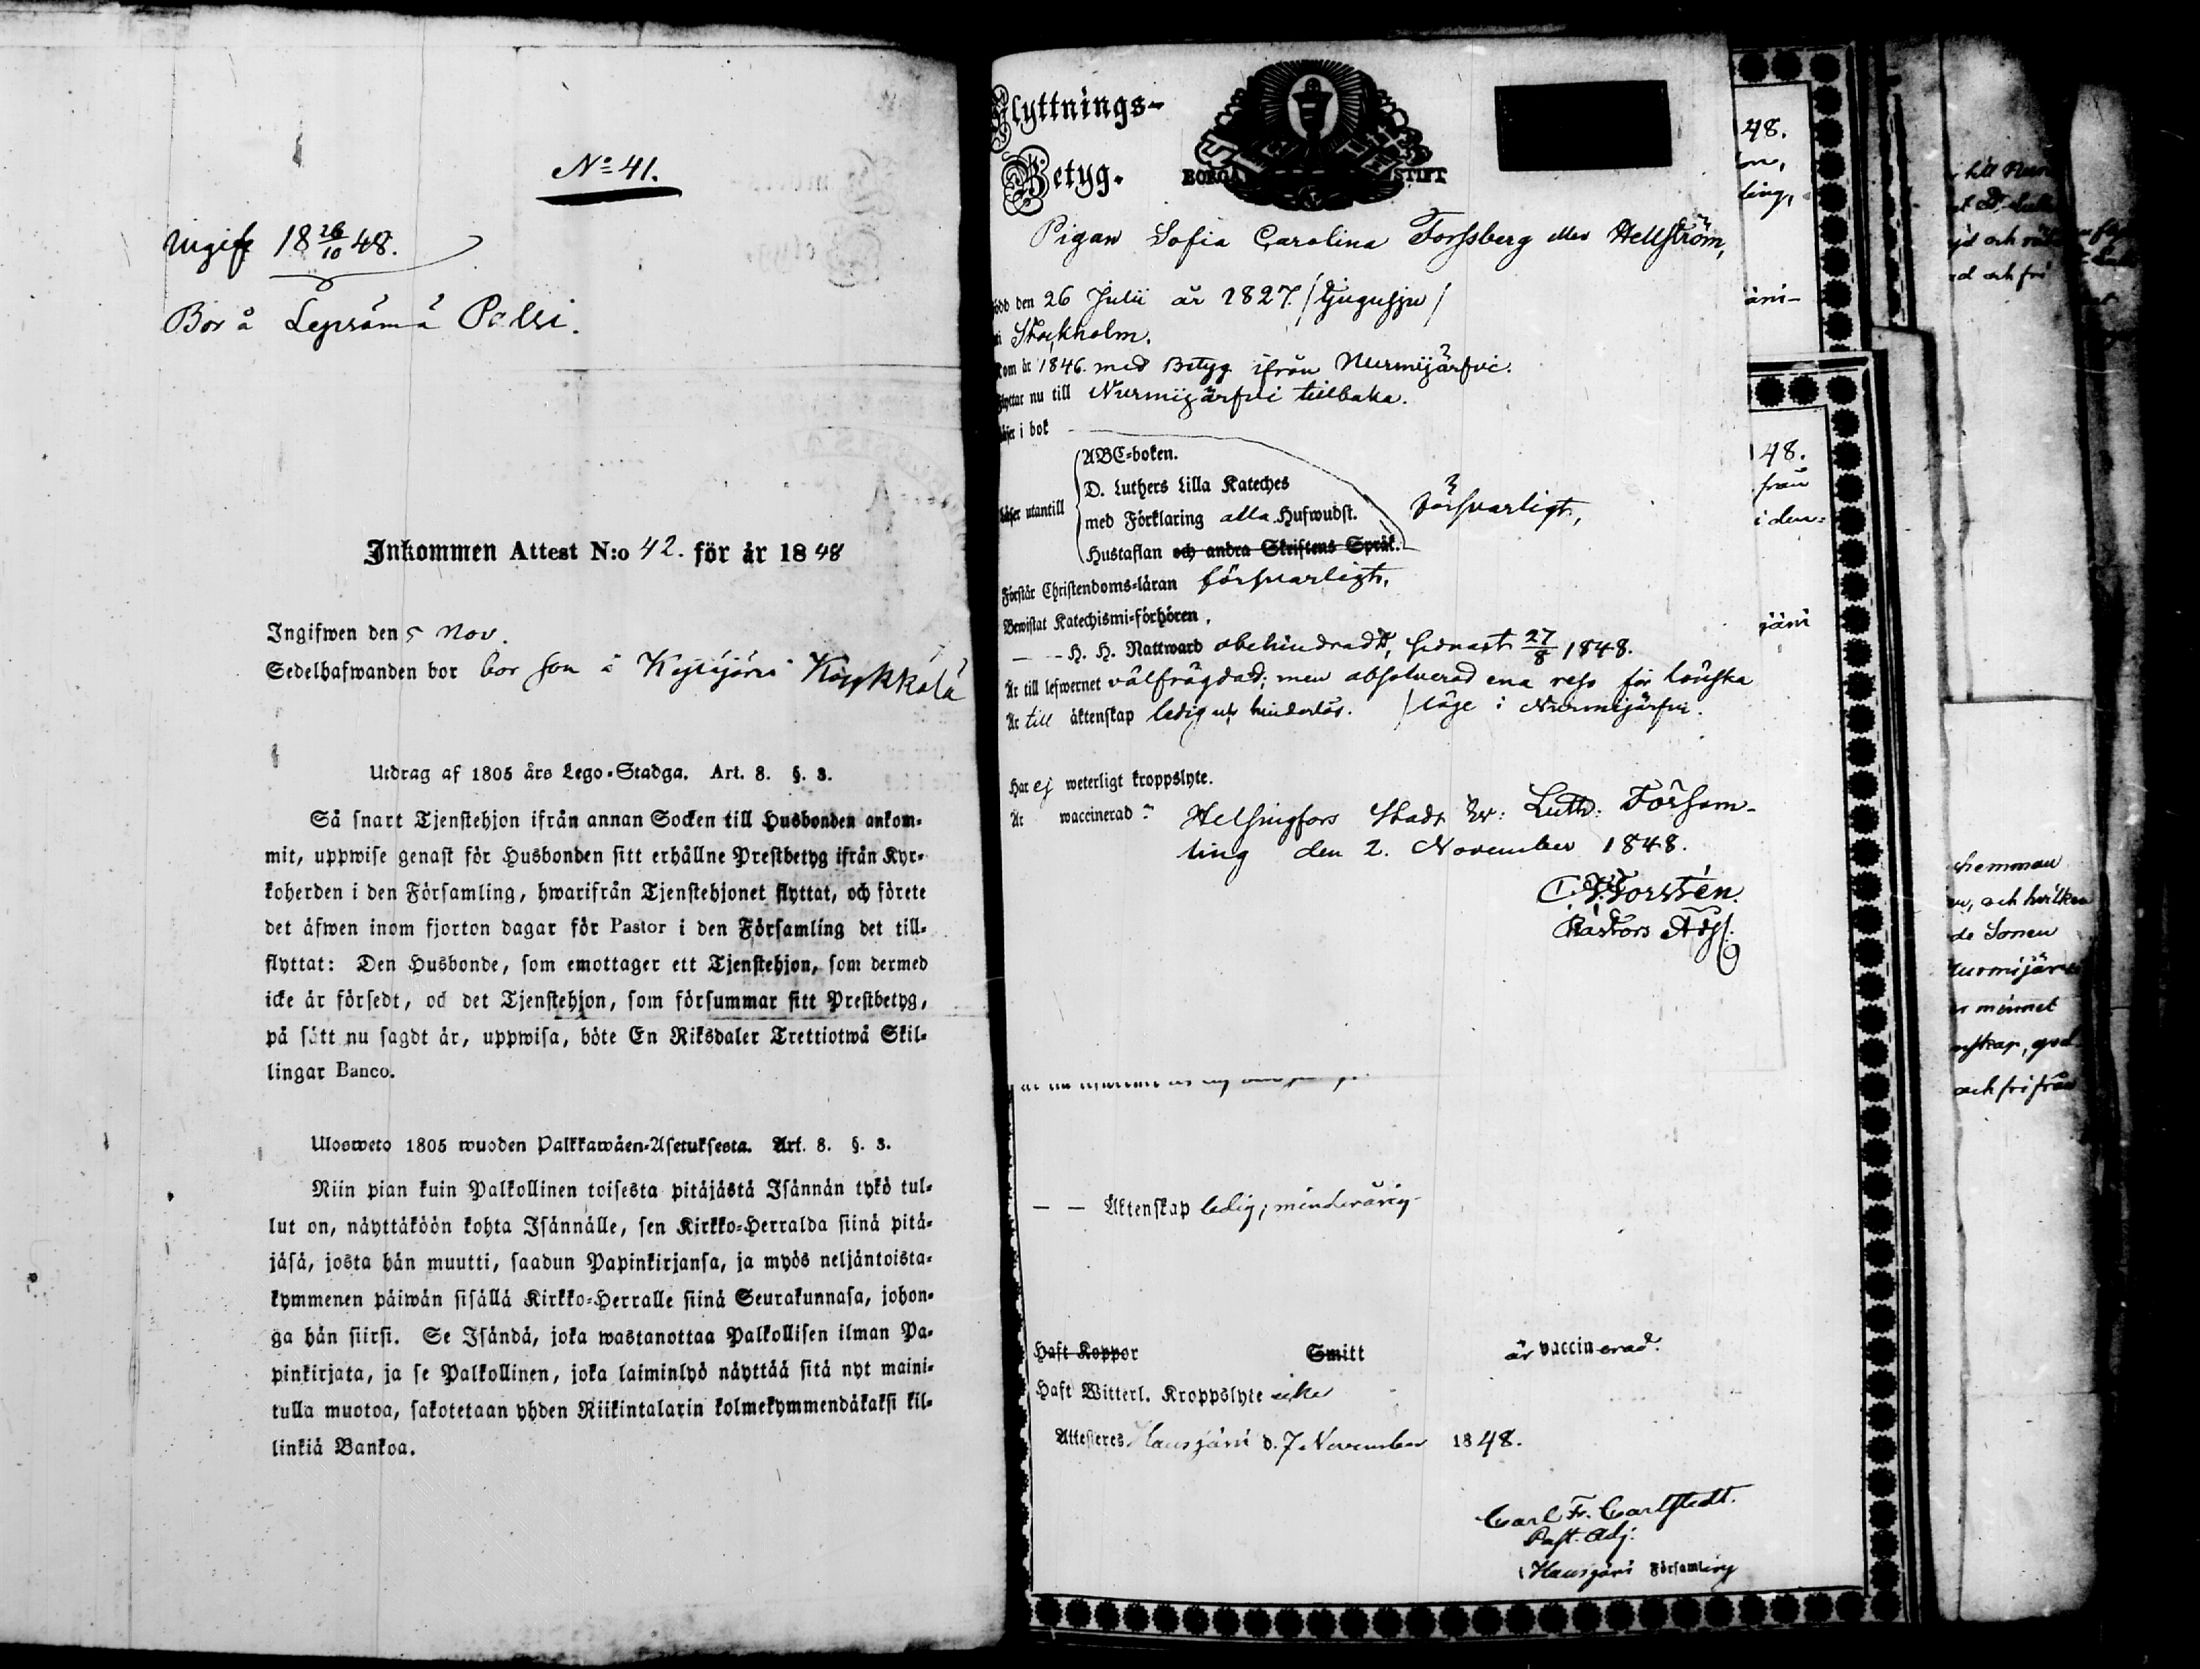 No 41.
Ingifv 18 26/10 48.
Bor å Lepsämä Palsi.
Inkommen Attest N:o 42. för år 1848
Ingifwen den 5 Nov.
Sedelhafwanden bor bor son å Köykkälä
Utdrag af 1805 års Lego-Stadga. Art. 8. §. 3.
Så snart Tjenstehjon ifrån annan Socken till Husbonden ankom-
mit, uppwise genast för Husbonden sitt erhållne Prestbetyg ifrån Kyr-
koherden i den Församling, hwarifrån Tjenstehjonet flyttat, och förete
det äfwen inom fjorton dagar för Pastor i den Församling det till-
flyttat: Den Husbonde, som emottager ett Tjenstehjon, som dermed
icke är försedt, och det Tjenstehjon, som försummar sitt Prestbetyg,
på sätt nu sagdt är, uppwisa, böte En Riksdaler Trettiotwå Skil-
lingar Banco.
Ulosweto 1805 wuoden Palkkawäen-Asetuksesta. Art. 8. §. 3.
Niin pian kuin Palkollinen toisesta pitäjästä Isännän tykö tul-
lut on, näyttäköön kohta Isännälle, sen Kirkko-Herralda siinä pitä-
jäsä, josta hän muutti, saadun Papinkirjansa, ja myös neljäntoista-
kymmenen päiwän sisällä Kirkko-Herralle siinä Seurakunnasa, johon-
ga hän siirsi. Se Isändä, joka wastanottaa Palkollisen ilman Pa-
pinkirjata, ja se Palkollinen, joka laiminlyö näyttää sitä nyt maini-
tulla muotoa, sakotetaan yhden Riikintalarin kolmekymmendäkaksi kil-
linkiä Bankoa.
Flyttnings-
Betyg.
BORGÅ STIFT
Pigan Sofia Carolina Forssberg eller Hellström,
född den 26 Julii år 1827. /Tjugusju/
i Stockholm.
Kom år 1846. med Betyg ifrån Nurmijärfvi.
Flyttar nu till Nurmijärfvi tillbaka.
Läser i bok
Läser utantill
ABC-boken.
D. Luthers Lilla Kateches
med Förklaring alla Hufwudst.
Hustaflan och andra Skriftens Språk.
försvarligt,
Förstår Christendoms-läran försvarligt,
Bewistat Katechismi-förhören,
— - H. H. Nattward obehindrad, sednast 27/8 1848.
Är till lefwernet välfrägdad; men absolverad ena resa för lönska
Är till äktenskap ledig och hinderlös. /läge i Nurmijärfvi.
Har ej weterligt kroppslyte.
Är waccinerad.
Helsingfors Stads Ev: Luth: Försam-
ling den 2. November 1848.
Forstén.
Pastors Adj.
— — Äktenskap ledig; minderårig
Haft Koppor Smitt är vaccinerad.
Haft Witterl. Kroppslyte icke
Attesteres Hausjärvi d. 7 November 1848.
Carl Fr. Carlstedt.
Past. Adj.
i Hausjärvi Församling
48.
ling,
48.
från
i den
järvi
hemman
och hvilken
de Sonen
och fri från